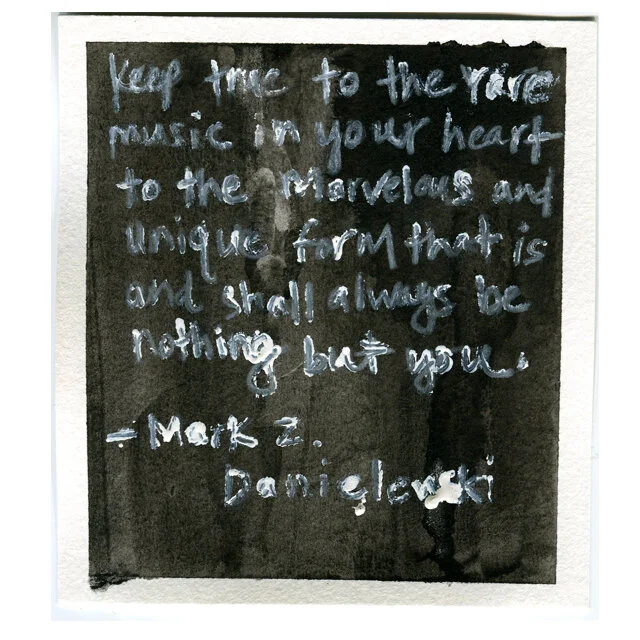 keep true to the rare
music in your heart
to the marvelous and
unique form that is
and shall always be
nothing but you.
- Mark Z.
Danielewski